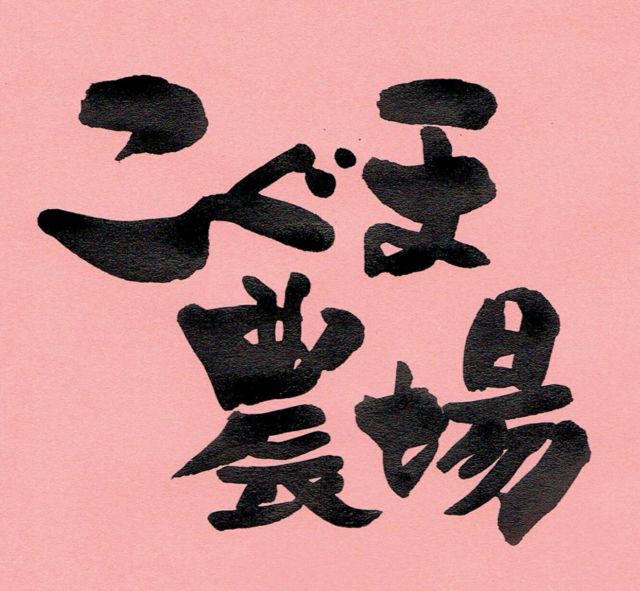 こぐま
農場